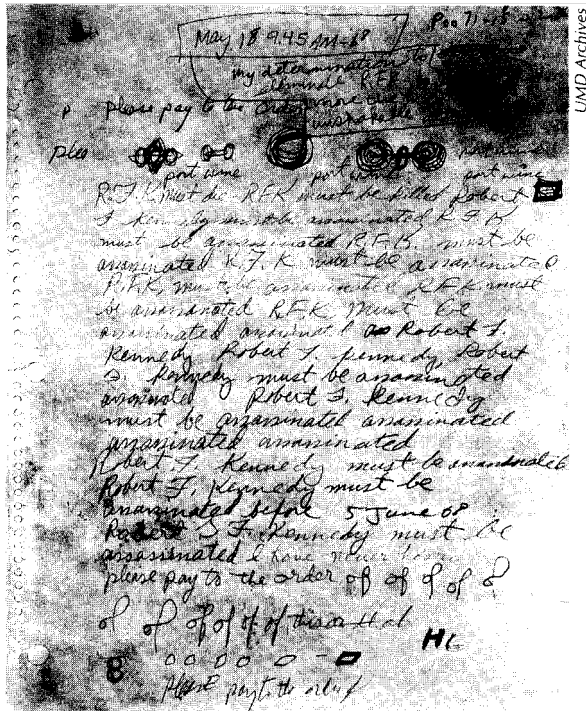 May 18 9.45 AM-68
my determination to
eliminate R.F.K.
please pay to the order
port wine port wine port wine
R.F.K must die R.F.K must be killed Robert
F. Kennedy must be assassinated R.F.K
must be assassinated R.F.K. must be
assassinated R.F.K must be assassinated
R.F.K. must be assassinated R.F.K must
be assassinated R.F.K must be
assassinated assassinated Robert F.
Kennedy Robert F. Kennedy Robert
F. Kennedy must be assassinated
assassinated Robert F. Kennedy
must be assassinated assassinated
assassinated assassinated
Robert F. Kennedy must be assassinated
Robert F. Kennedy must be
assassinated before 5 June 68
Robert F. Kennedy must be
assassinated I have never
please pay to the order of of of of of
of of of of of of this or that
8 o o o o
please pay to the order of
UMD Archives